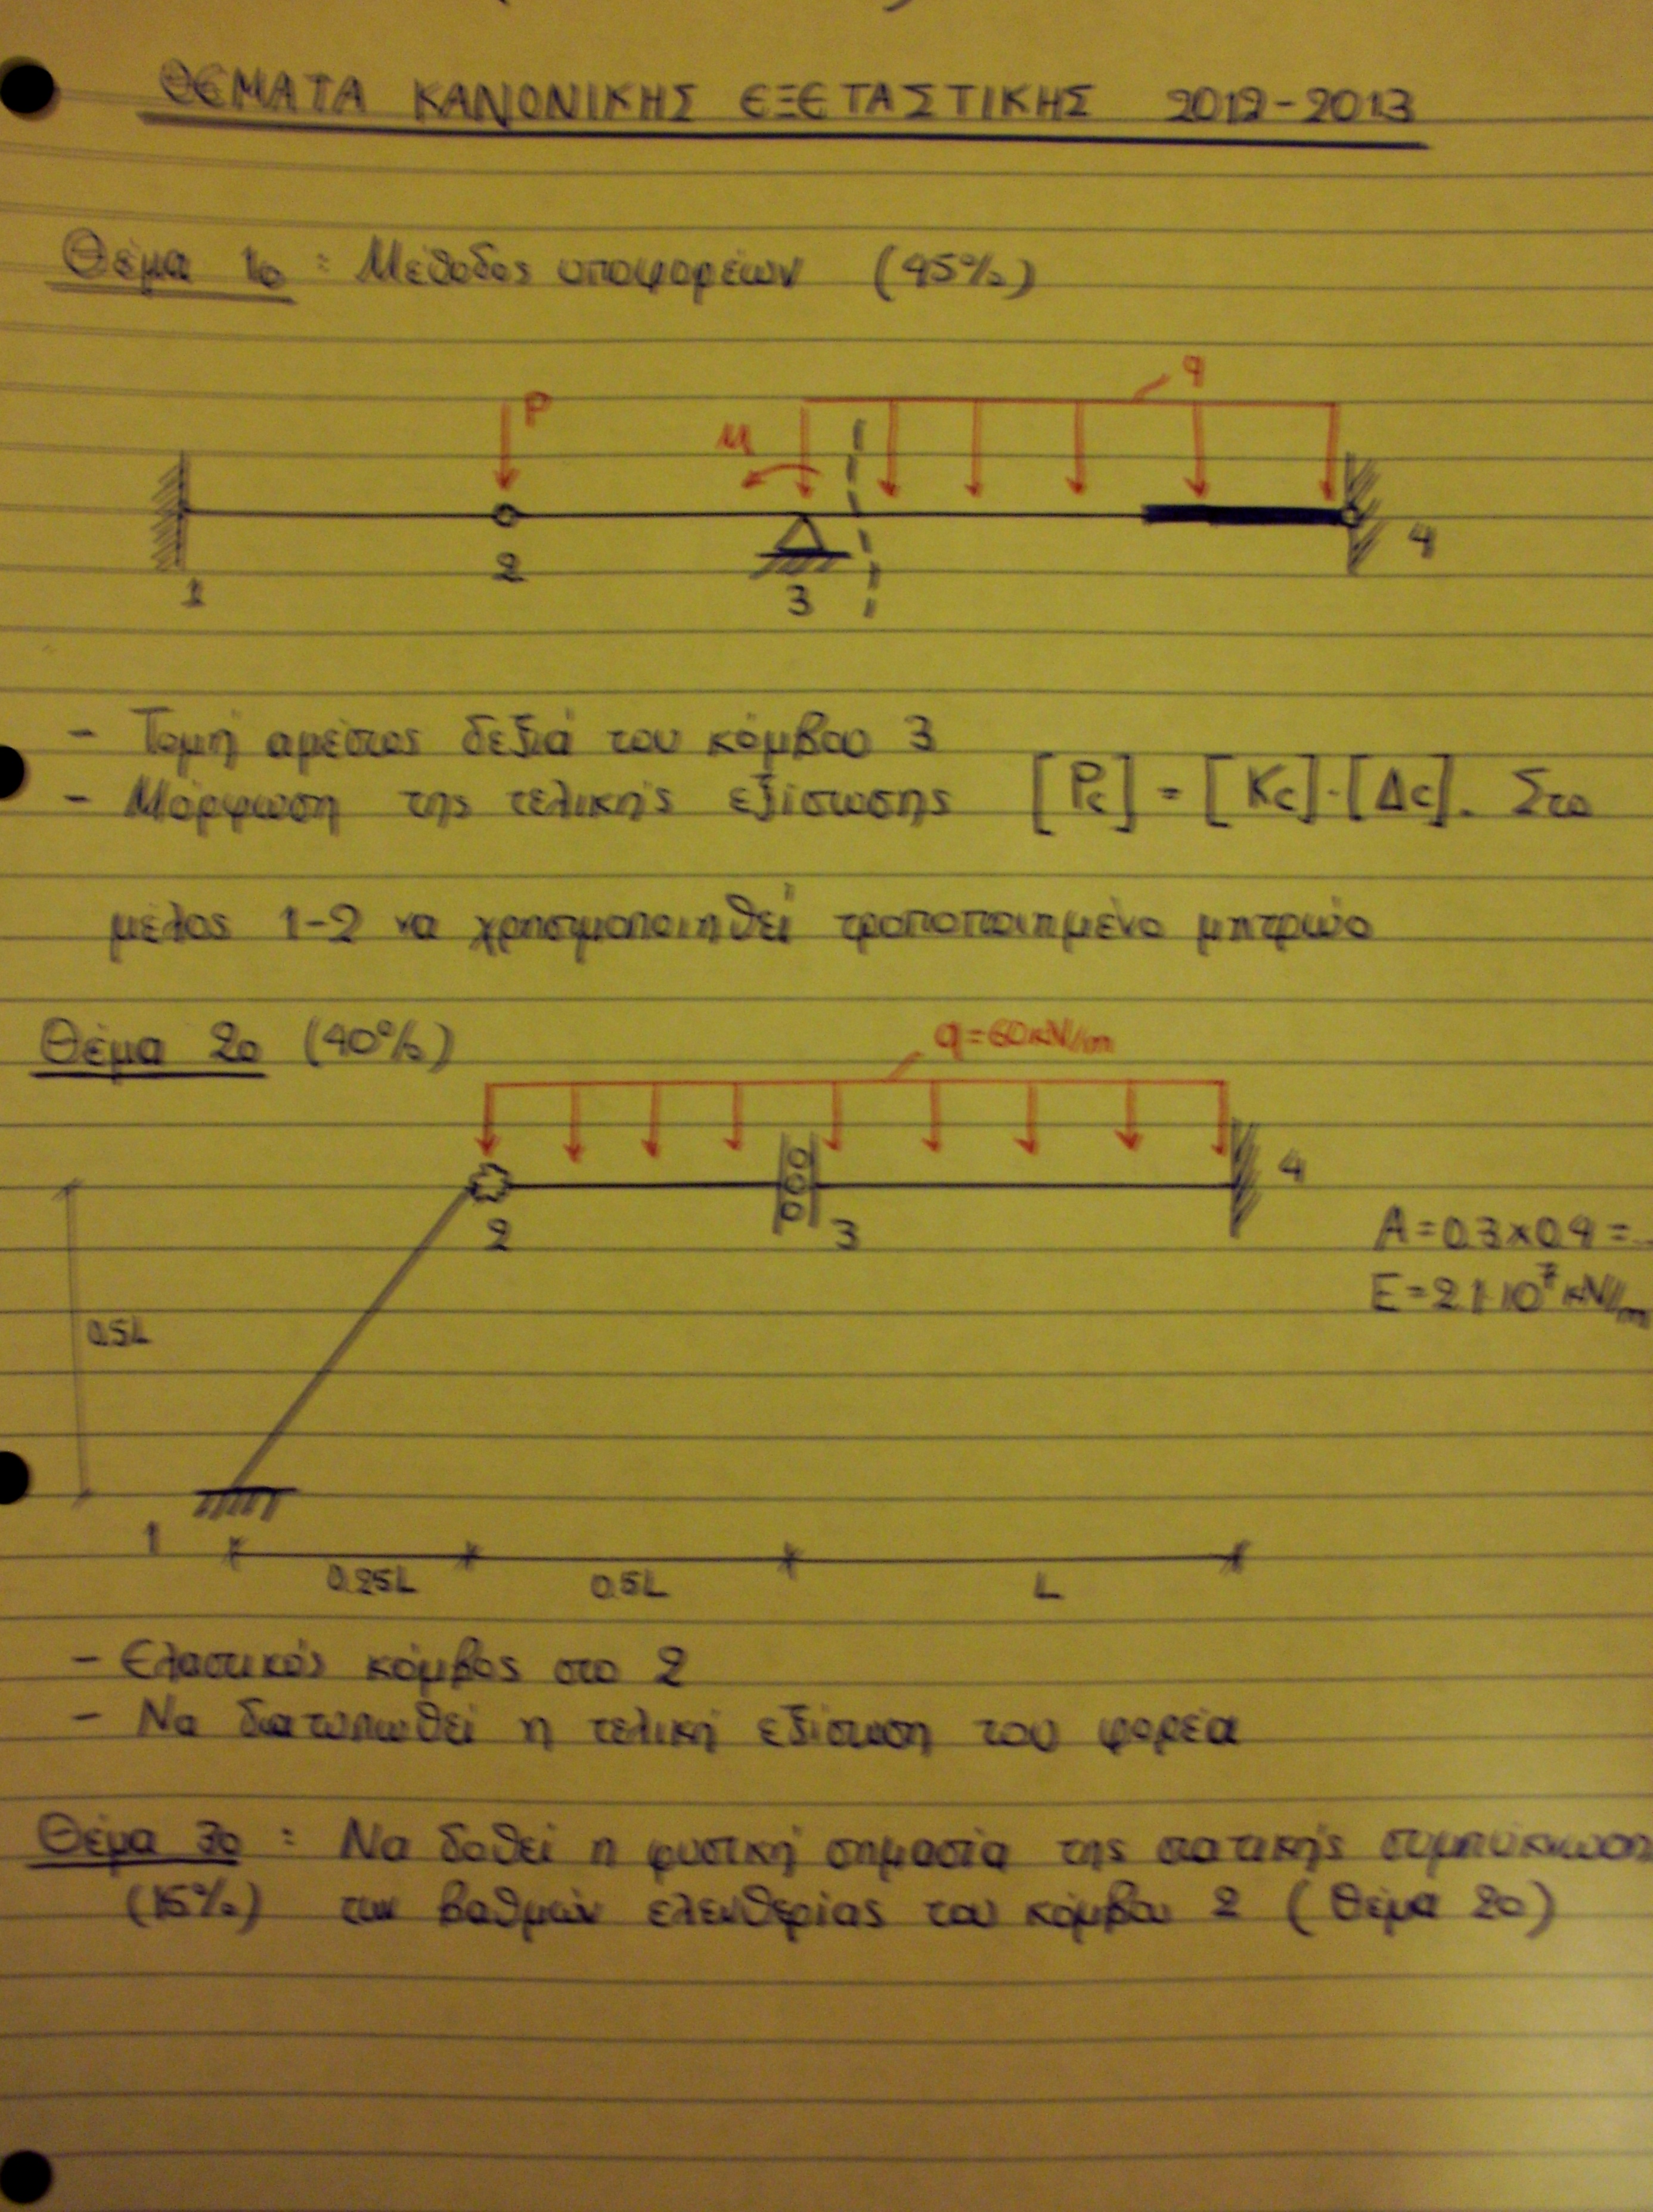 ΘΕΜΑΤΑ ΚΑΝΟΝΙΚΗΣ ΕΞΕΤΑΣΤΙΚΗΣ 2012-2013
Θέμα 1ο : Μέθοδος υποφορέων (45%)
q
P
M
1
2
3
4
- Τομή αμέσως δεξιά του κόμβου 3
- Μόρφωση της τελικής εξίσωσης [Pc] = [Kc]·[Δc]. Στο
μέλος 1-2 να χρησιμοποιηθεί τροποποιημένο μητρώο
Θέμα 2ο (40%)
q=60kN/m
4
2
3
A=0.3x0.4=..
E=2.1·10⁷kN/m
0.5L
1
0.25L
0.5L
L
- Ελαστικός κόμβος στο 2
- Να διατυπωθεί η τελική εξίσωση του φορέα
Θέμα 3ο : Να δοθεί η φυσική σημασία της στατικής συμπύκνωση
(15%) των βαθμών ελευθερίας του κόμβου 2 (Θέμα 2ο)